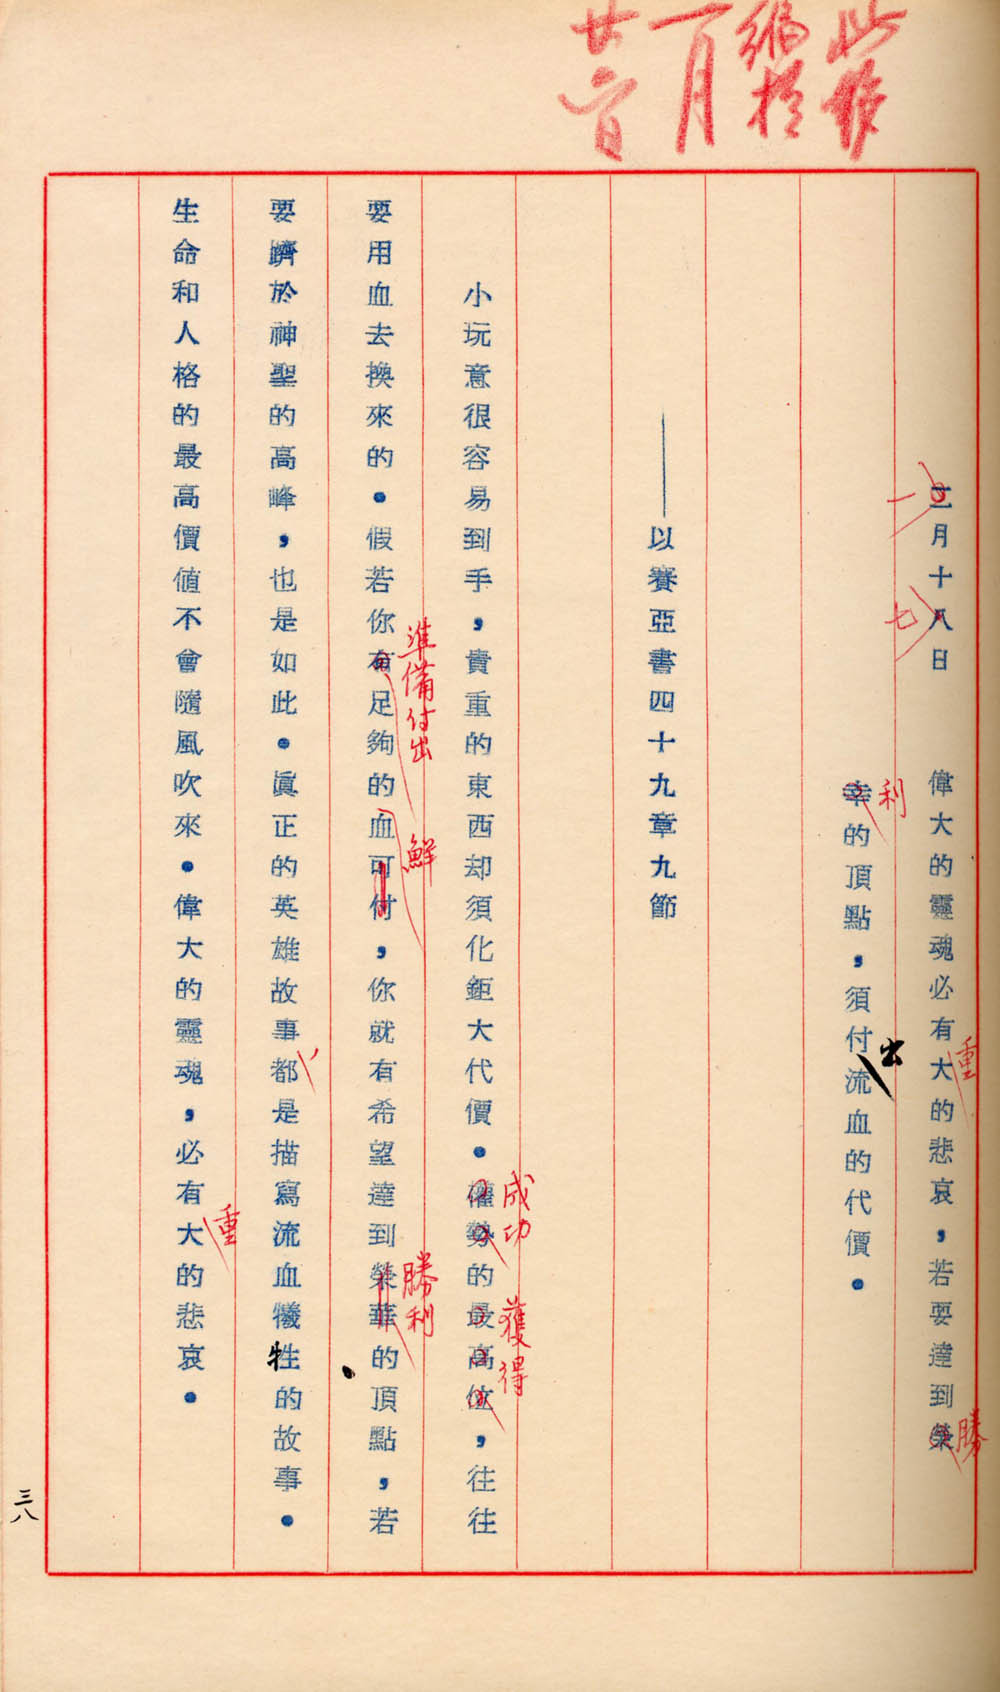 此
編於
一月
二月十八日　偉大的靈魂必有大的悲哀，若要達到榮
一
七
重
勝
幸的頂點，須付流血的代價。
利
出
——以賽亞書四十九章九節
小玩意很容易到手，貴重的東西却須化鉅大代價。權勢的最高位，往往
成功
獲得
要用血去換來的。假若你有足夠的血可付，你就有希望達到榮華的頂點，若
準備付出
鮮
勝利
要躋於神聖的高峰，也是如此。眞正的英雄故事都是描寫流血犧牲的故事。
生命和人格的最高價値不會隨風吹來。偉大的靈魂，必有大的悲哀。
重
三八